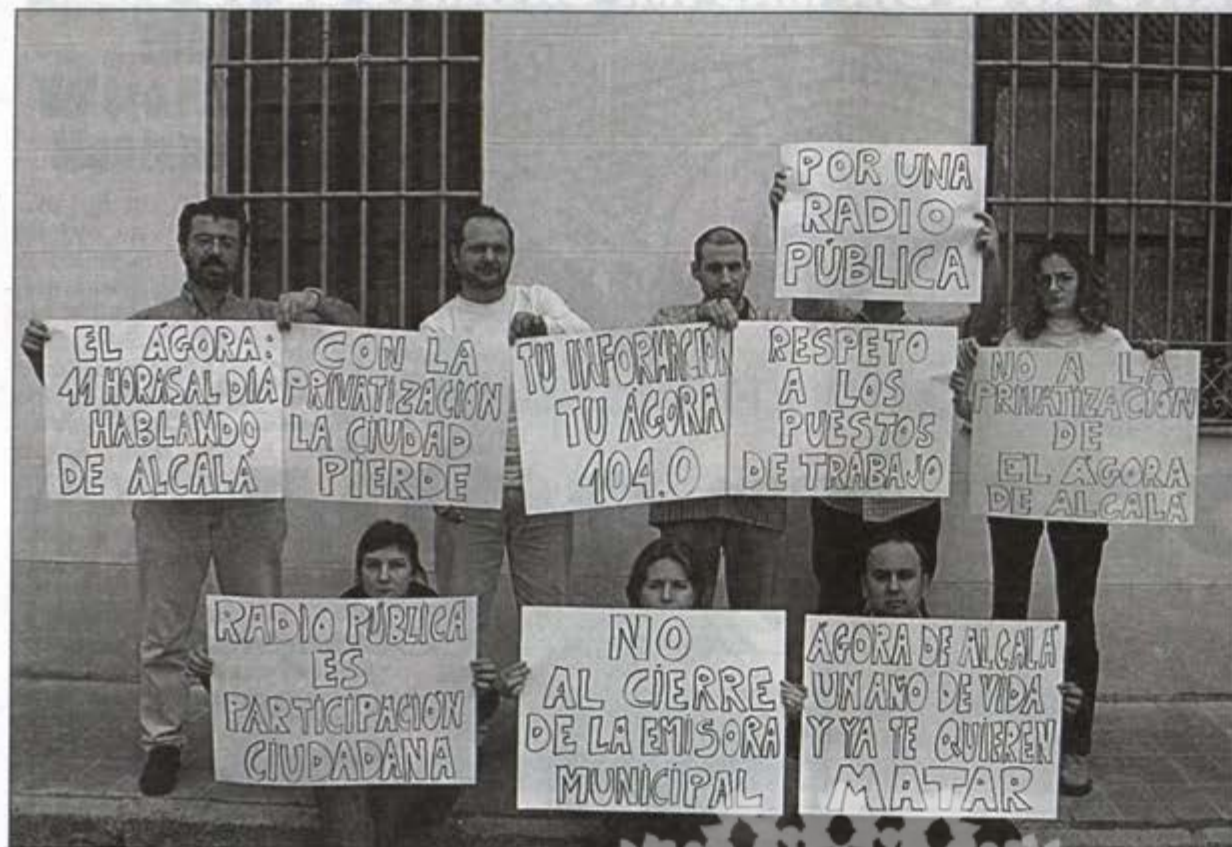 POR UNA
RADIO
PÚBLICA
EL ÁGORA:
11 HORAS AL DÍA
HABLANDO
DE ALCALÁ
CON LA
PRIVATIZACIÓN
LA CIUDAD
PIERDE
TU INFORMACIÓN
TU ÁGORA
104.0
RESPETO
A LOS
PUESTOS
DE TRABAJO
NO A LA
PRIVATIZACIÓN
DE
EL ÁGORA
DE ALCALÁ
RADIO PÚBLICA
ES
PARTICIPACIÓN
CIUDADANA
NO
AL CIERRE
DE LA EMISORA
MUNICIPAL
ÁGORA DE ALCALÁ
UN AÑO DE VIDA
Y YA TE QUIEREN
MATAR